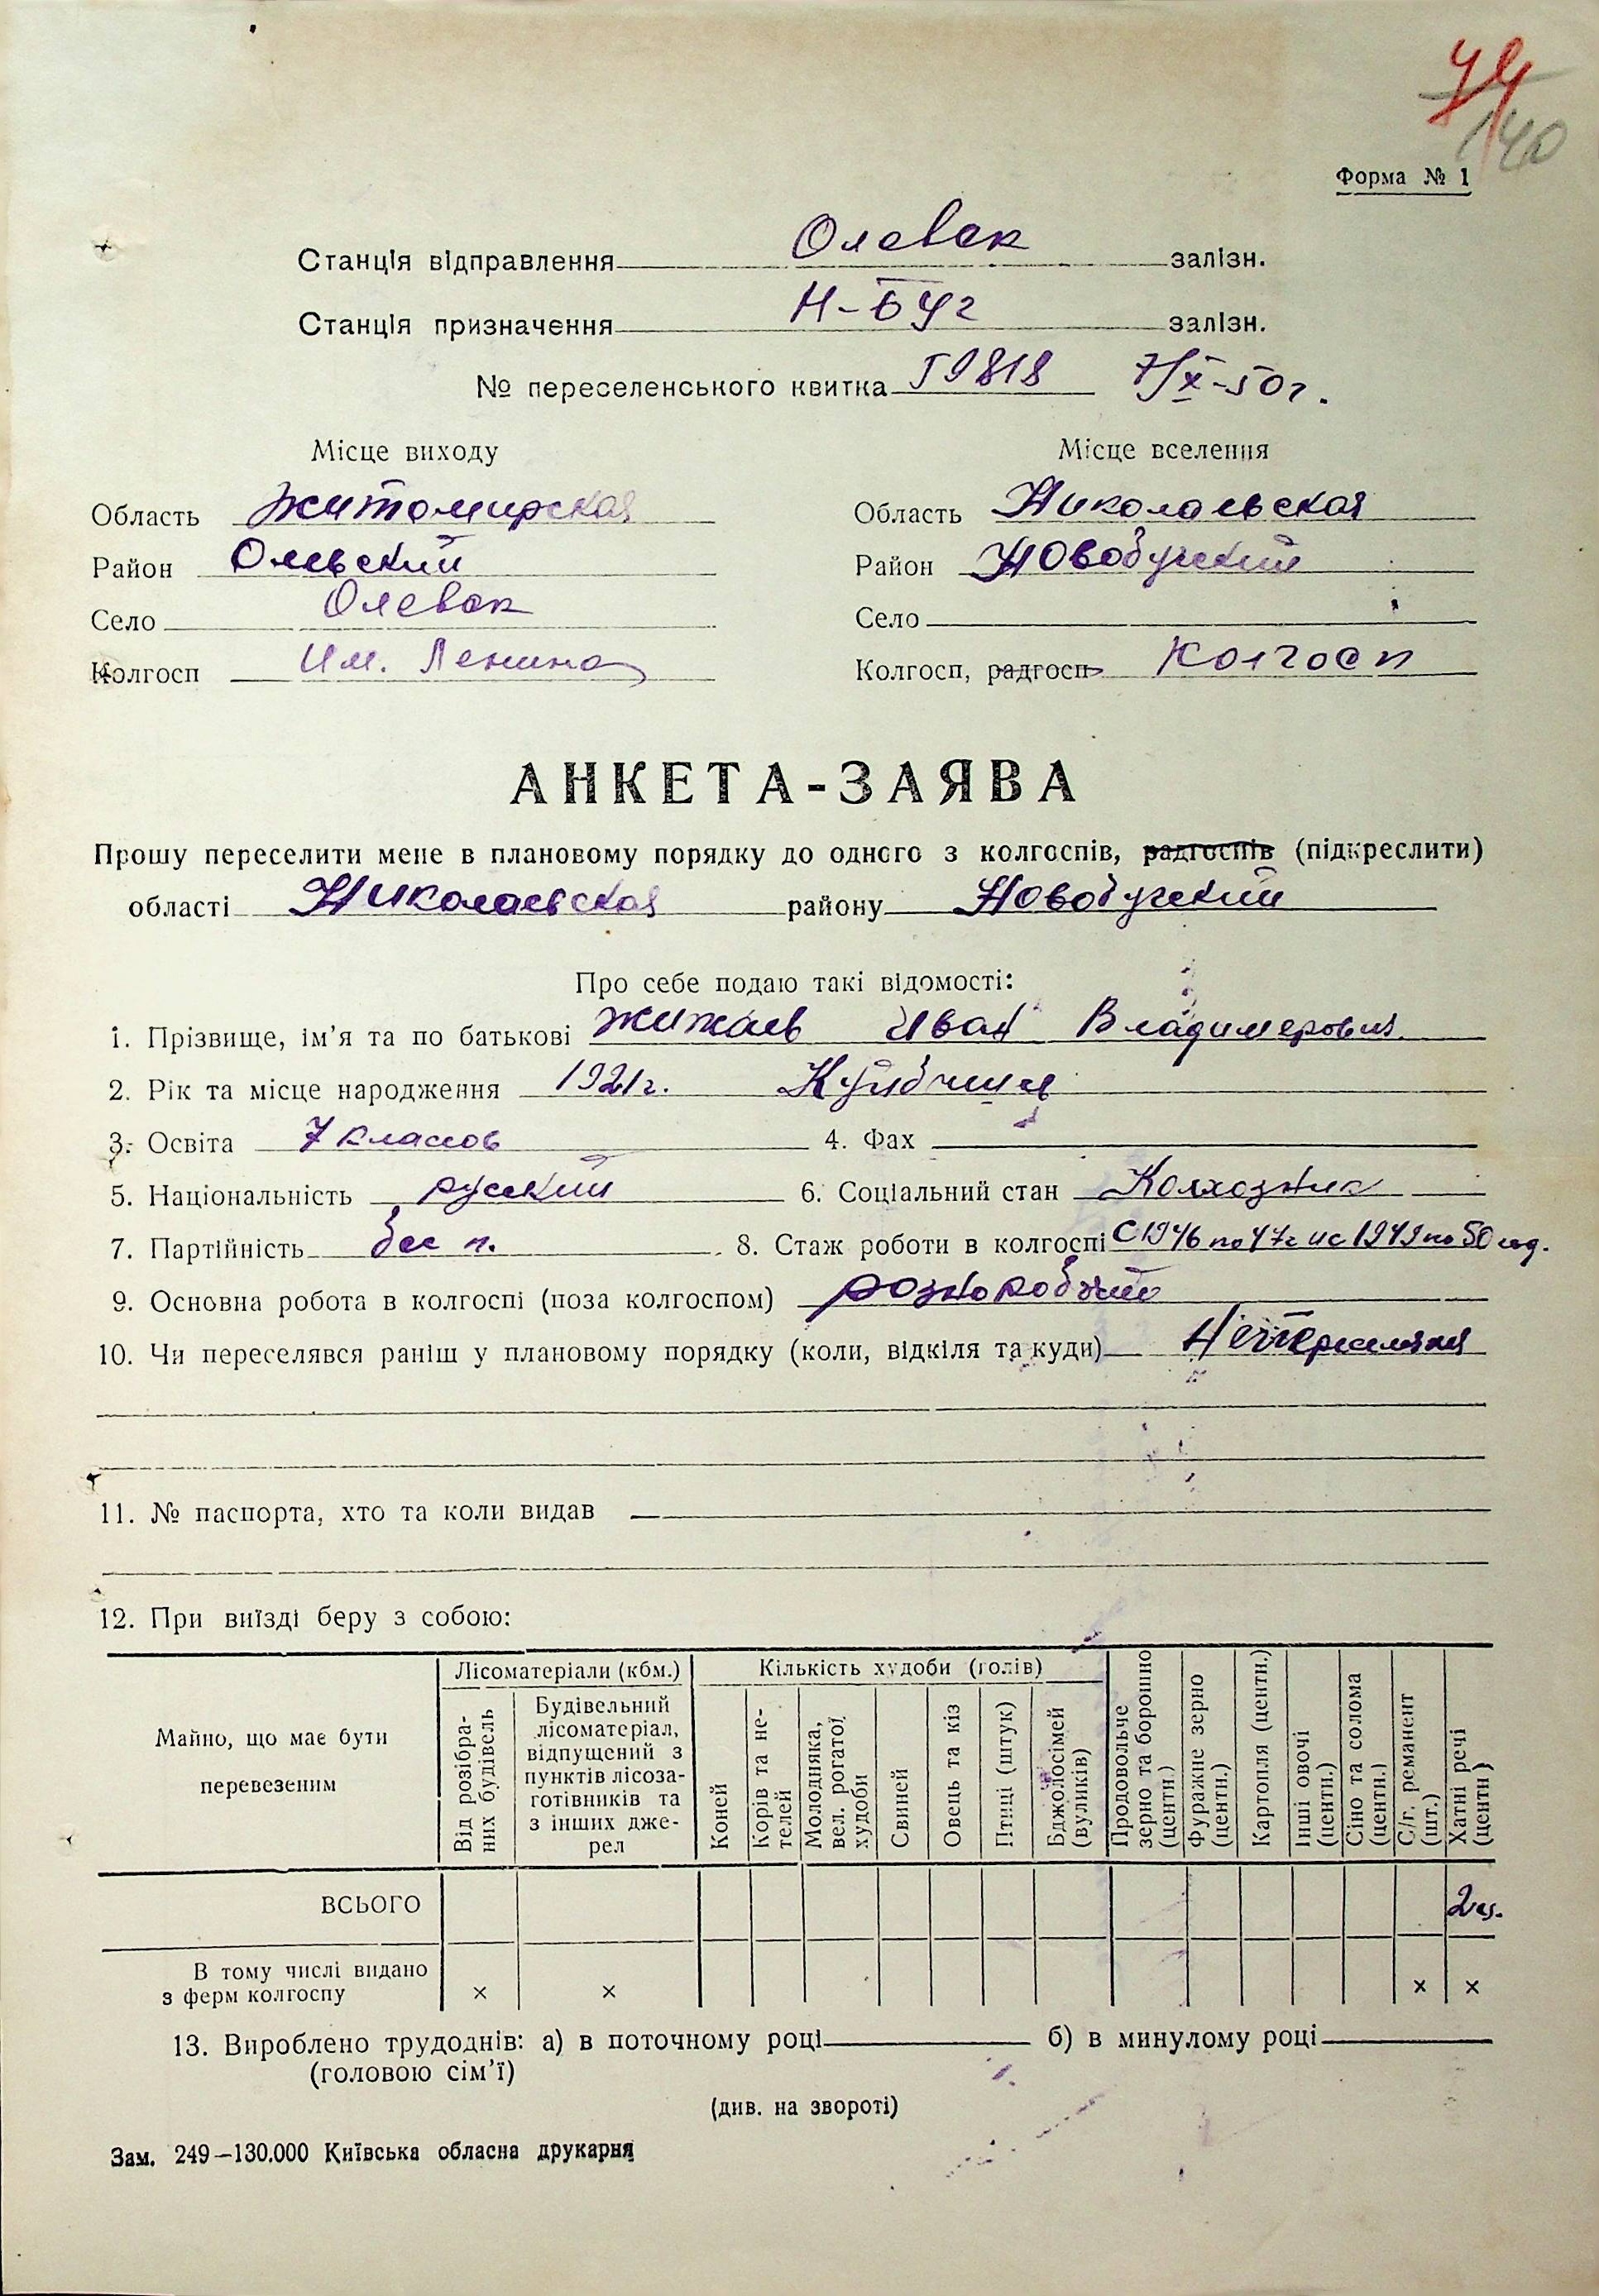 74
140
Форма № 1
Станція відправлення Олевск залізн.
Станція призначення Н-Буг залізн.
№ переселенського квитка 59818 7/X-50г.
Місце виходу Місце вселення
Область Житомирская Область Николаевская
Район Олевский Район Новобугский
Село Олевск Село
Колгосп Им. Ленина Колгосп, радгосп Колгосп
АНКЕТА-ЗАЯВА
Прошу переселити мене в плановому порядку до одного з колгоспів, радгоспів (підкреслити)
області Николаевская району Новобугский
Про себе подаю такі відомості:
1. Прізвище, ім’я та по батькові Жижаев Иван Владимерович
2. Рік та місце народження 1921г.
3. Освіта 7 классов 4. Фах
5. Національність русский 6. Соціальний стан Колхозник
7. Партійність бес п. 8. Стаж роботи в колгоспі С 1946 по 47г и с 1949 по 50 год.
9. Основна робота в колгоспі (поза колгоспом) розноробочий
10. Чи переселявся раніш у плановому порядку (коли, відкіля та куди) Непереселялся
11. № паспорта, хто та коли видав
12. При виїзді беру з собою:
Майно, що має бути перевезеним
Лісоматеріали (кбм.)
Від розібраних будівель
Будівельний лісоматеріал, відпущений з пунктів лісозаготівників та з інших джерел
Кількість худоби (голів)
Коней
Корів та нетелей
Молодняка, вел. рогатої худоби
Свиней
Овець та кіз
Птиці (штук)
Бджолосімей (вуликів)
Продовольче зерно та борошно (центн.)
Фуражне зерно (центн.)
Картопля (центн.)
Інші овочі (центн.)
Сіно та солома (центн.)
С/г. реманент (шт.)
Хатні речі (центн)
ВСЬОГО 2
В тому числі видано з ферм колгоспу × × × ×
13. Вироблено трудоднів: а) в поточному році б) в минулому році
(головою сім’ї)
(див. на звороті)
Зам. 249—130.000 Київська обласна друкарня